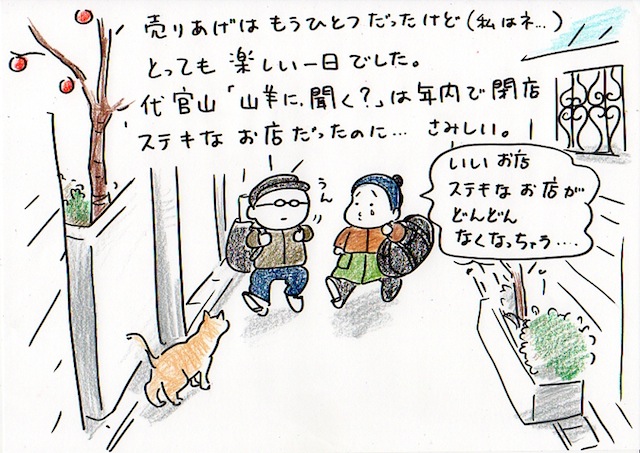 売りあげは もうひとつだったけど(私はネ…)
とっても 楽しい一日でした。
代官山「山羊に、聞く?」は年内で閉店
ステキな お店だったのに… さみしい。
うん
いい お店
ステキな お店が
どんどん
なくなっちゃう‥‥